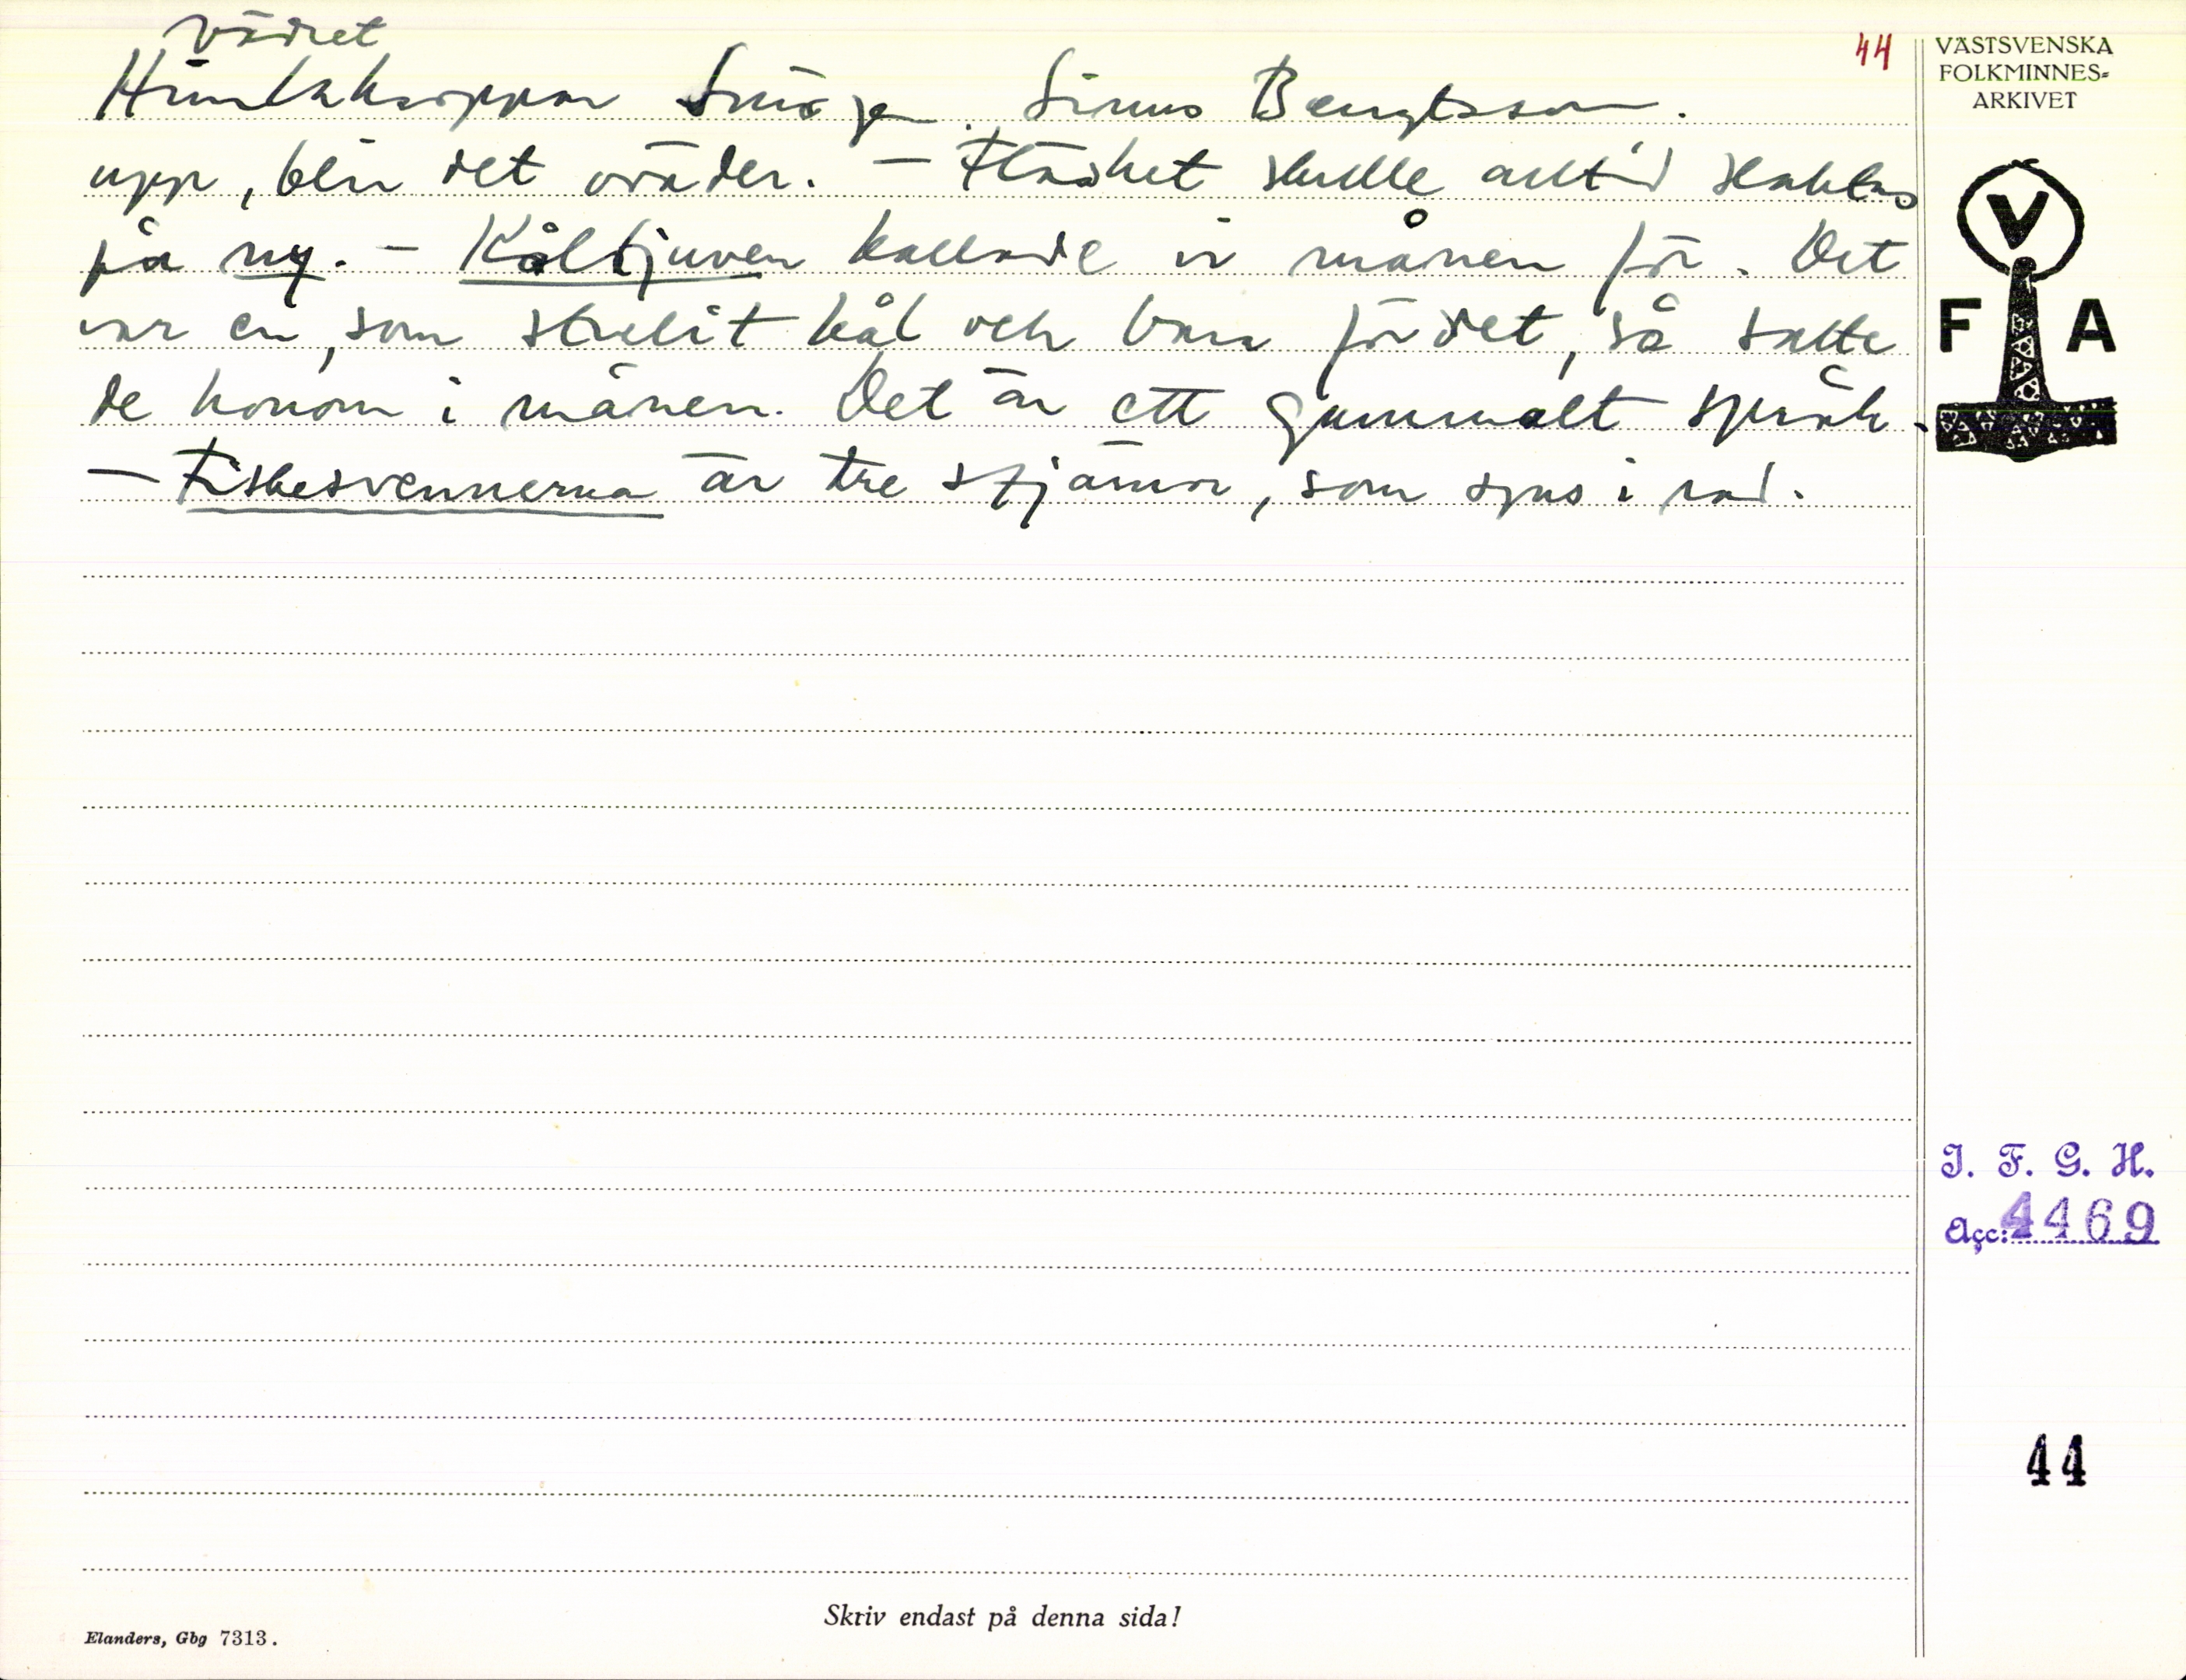 Vädret
44
Himlakroppar Smögen. Linus Bengtsson.
upp, blir det oväder. – Fläsket skulle alltid slaktas
på ny. – Kåltjuven kallade vi månen för. Det
var en, som stulit kål och bara för det, så satte
de honom i månen. Det är ett gammalt språk.
– Fiskesvennerna är tre stjärnor, som syns i rad.
VÄSTSVENSKA
FOLKMINNES-
ARKIVET
V
F A
I. F. G. H.
Acc: 4469
44
Skriv endast på denna sida!
Elanders, Gbg 7313.